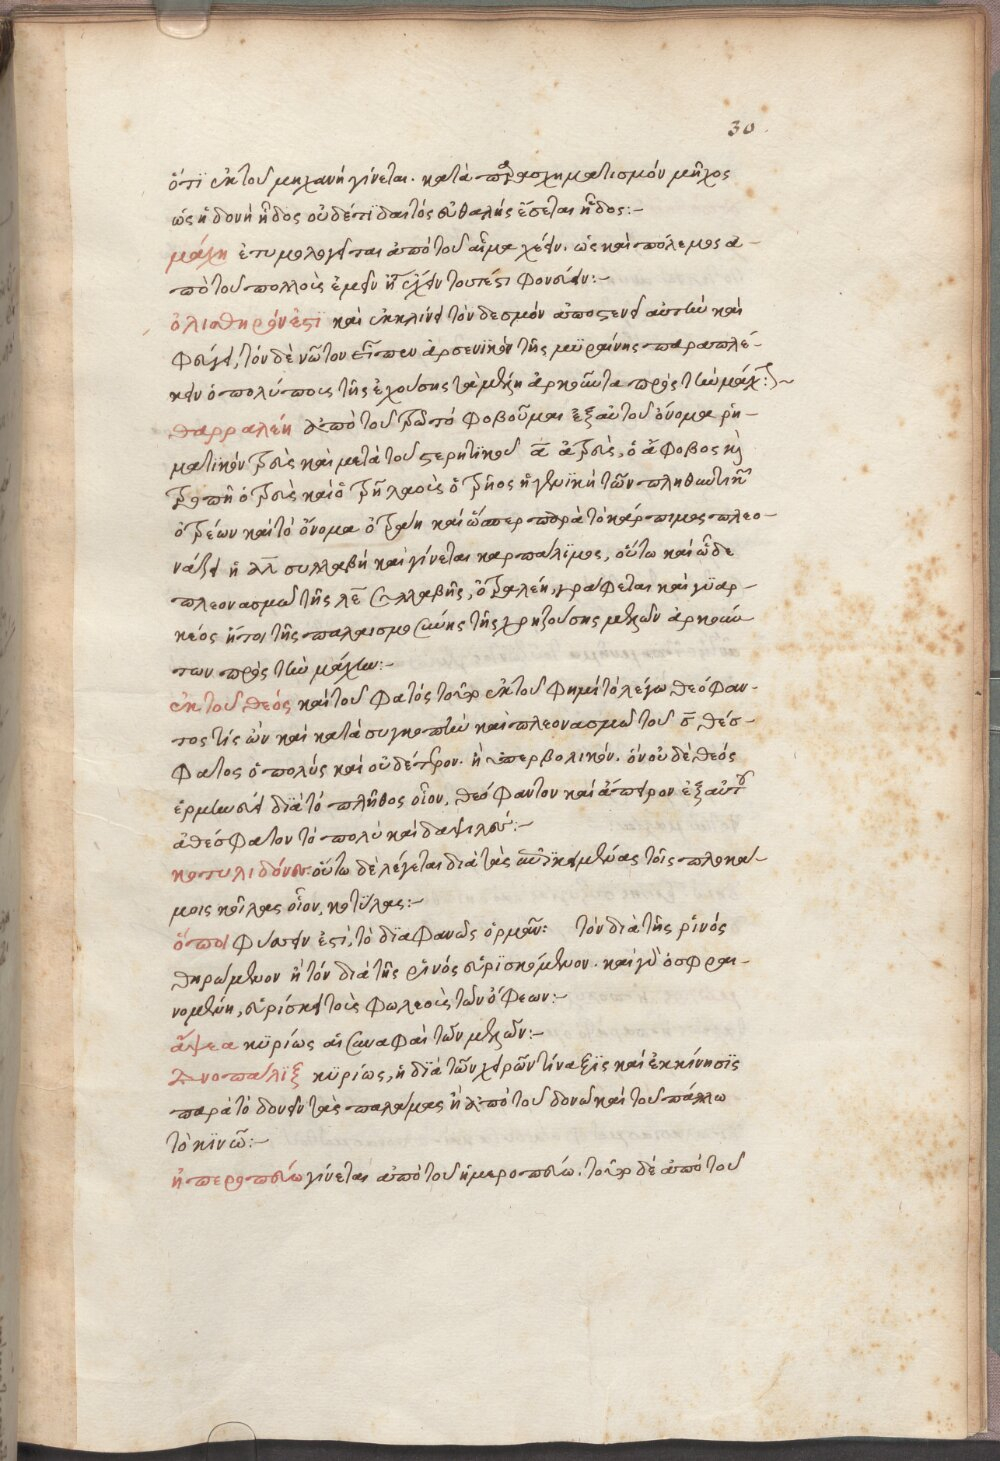 30
ὅτι ἐκ τοῦ μηχανὴ γίνεται. κατὰ παρασχηματισμόν μῆχος
ὡς ἡδονὴ ἦδος οὐδέ τι δαιτός εὐθαλής ἔσεται ἦδος:-
μάχη ἐτυμολογεῖται ἀπὸ τοῦ αἷμα χέειν. ὡς καὶ πόλεμος ἀ-
πὸ τοῦ πολλοὺς ἐμεῖν ἢ ἐλεῖν τουτέστι φονεύειν:-
ὀλισθηρόν ἐστι καὶ ἐκκλίνει τὸν δεσμόν ἀποστενεῖ αὐτὴν καὶ
φεύγει, τὸν δὲ νῶτον εἶπεν ἀρσενικόν τῆς μυραίνης παραπλέ-
κειν ὁ πολύπους τῆς ἐχούσης τὰ μέλη ἀρκοῦντα πρὸς τὴν μάχην:~
θαρραλέη ἀπὸ τοῦ τρῶ τὸ φοβοῦμαι ἐξ αὐτοῦ ὄνομα ῥη-
ματικόν τρεὺς καὶ μετὰ τοῦ στερητικοῦ α ἀτρεὺς, ὁ ἄφοβος καὶ
ὀτρέων καὶ τὸ ὄνομα ὀτραλη καὶ ὥσπερ παρὰ τὸ κάρπιμος πλεο-
νάζει ἡ αλ συλλαβή καὶ γίνεται καρπάλιμος, οὕτω καὶ ὧδε
πλεονασμῶ τῆς λε συλλαβῆς, ὀτραλέη, γράφεται καὶ γυιαρ-
κέος ἤτοι τῆς παλαισμοσύνης τῆς χρηζούσης μελῶν ἀρκούν
των πρὸς τὴν μάχην:-
ἐκ τοῦ θεός καὶ τοῦ φατός τοῦτο ἐκ τοῦ φημί τὸ λέγω θεόφαν-
τος τίς ὢν καὶ κατὰ συγκοπὴν καὶ πλεονασμῶ τοῦ σ θέσ-
φατος ὁ πολύς καὶ οὐδέτερον. ἢ ὑπερβολικόν. ὅν οὐδὲ θεός
ἑρμηνεύσει διὰ τὸ πλῆθος οἷον, θεόφαντον καὶ ἄπειρον ἐξ αὐτοῦ
ἀθέσφατον τὸ πολὺ καὶ δαψιλές:-
κοτυληδόνων οὕτω δὲ λέγεται διὰ τὰς ἐγκειμένας τοῖς πλοκα-
μοις κοίλας οἷον, κοτύλας:-
ὅποι φύσειν ἐστὶ, τὸ διαφανῶς ὁρμᾶν: τὸν διὰ τῆς ῥινός
θηρώμενον ἢ τὸν διὰ τῆς ῥινός εὑρισκόμενον. καὶ γὰρ ὀσφραι-
νομένη, εὑρίσκει τοὺς φωλεοὺς τῶν ὄφεων:-
ἅψεα κυρίως αἱ συναφαὶ τῶν μελῶν:-
δνοπάλιξ κυρίως, ἡ διὰ τῶν χειρῶν τίναξις καὶ ἐκκίνησις
παρὰ τὸ δονεῖν τὰς παλάμας ἢ ἀπὸ τοῦ δονῶ καὶ τοῦ πάλλω
τὸ κινῶ:-
ἠπεροπεύω γίνεται ἀπὸ τοῦ ἡμεροπεύω. τοῦτο δὲ ἀπὸ τοῦ